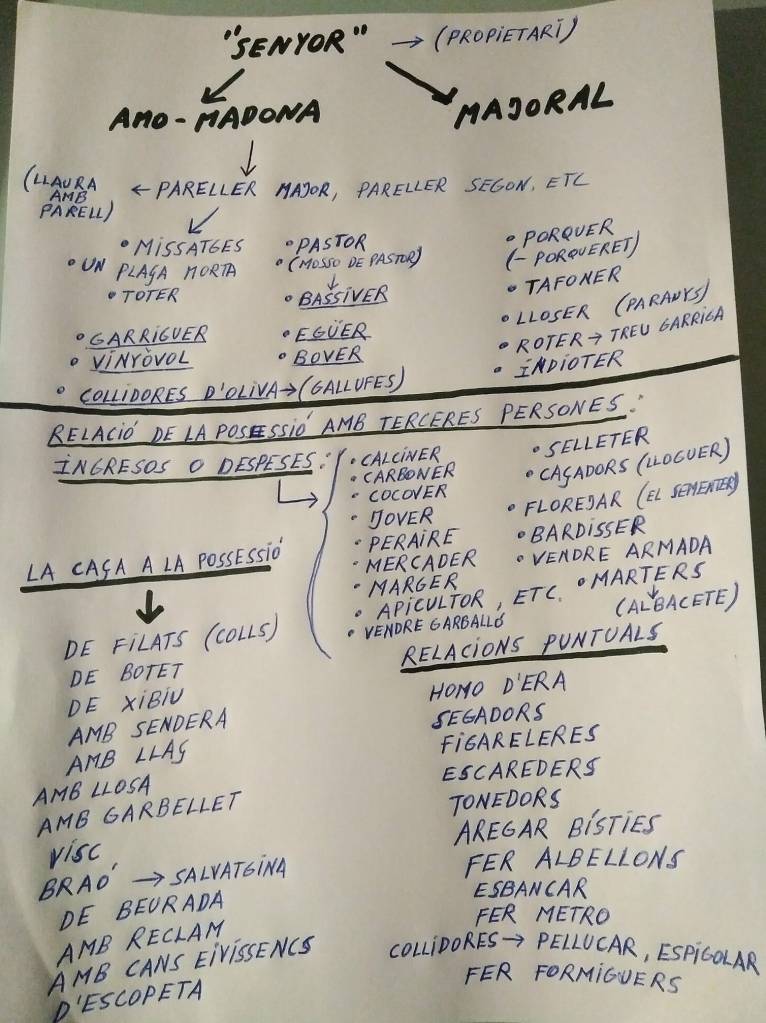 "SENYOR" → (PROPIETARI)
AMO - MADONA
MAJORAL
(LLAURA AMB PARELL) ← PARELLER MAJOR, PARELLER SEGON, ETC
• MISSATGES
• UN PLAÇA MORTA
• TOTER
• GARRIGUER
• VINYÒVOL
• COLLIDORES D'OLIVA → (GALLUFES)
• PASTOR
• (MOSSO DE PASTOR)
• BASSIVER
• EGÜER
• BOVER
• PORQUER
(- PORQUERET)
• TAFONER
• LLOSER (PARANYS)
• ROTER → TREU GARRIGA
• INDIOTER
RELACIÓ DE LA POSESSIÓ AMB TERCERES PERSONES:
INGRESOS O DESPESES:
• CALCINER
• CARBONER
• COCOVER
• JOVER
• PERAIRE
• MERCADER
• MARGER
• APICULTOR, ETC.
• VENDRE GARBALLÓ
• SELLETER
• CAÇADORS (LLOGUER)
• FLOREJAR (EL SEMENTER)
• BARDISSER
• VENDRE ARMADA
• MARTERS
(ALBACETE)
LA CAÇA A LA POSSESSIÓ
DE FILATS (COLLS)
DE BOTET
DE XIBIU
AMB SENDERA
AMB LLAÇ
AMB LLOSA
AMB GARBELLET
VISC
BRAÓ → SALVATGINA
DE BEURADA
AMB RECLAM
AMB CANS EIVISSENCS
D'ESCOPETA
RELACIONS PUNTUALS
HOMO D'ERA
SEGADORS
FIGARELERES
ESCAREDERS
TONEDORS
AREGAR BÍSTIES
FER ALBELLONS
ESBANCAR
FER METRO
COLLIDORES → PELLUCAR, ESPIGOLAR
FER FORMIGUERS